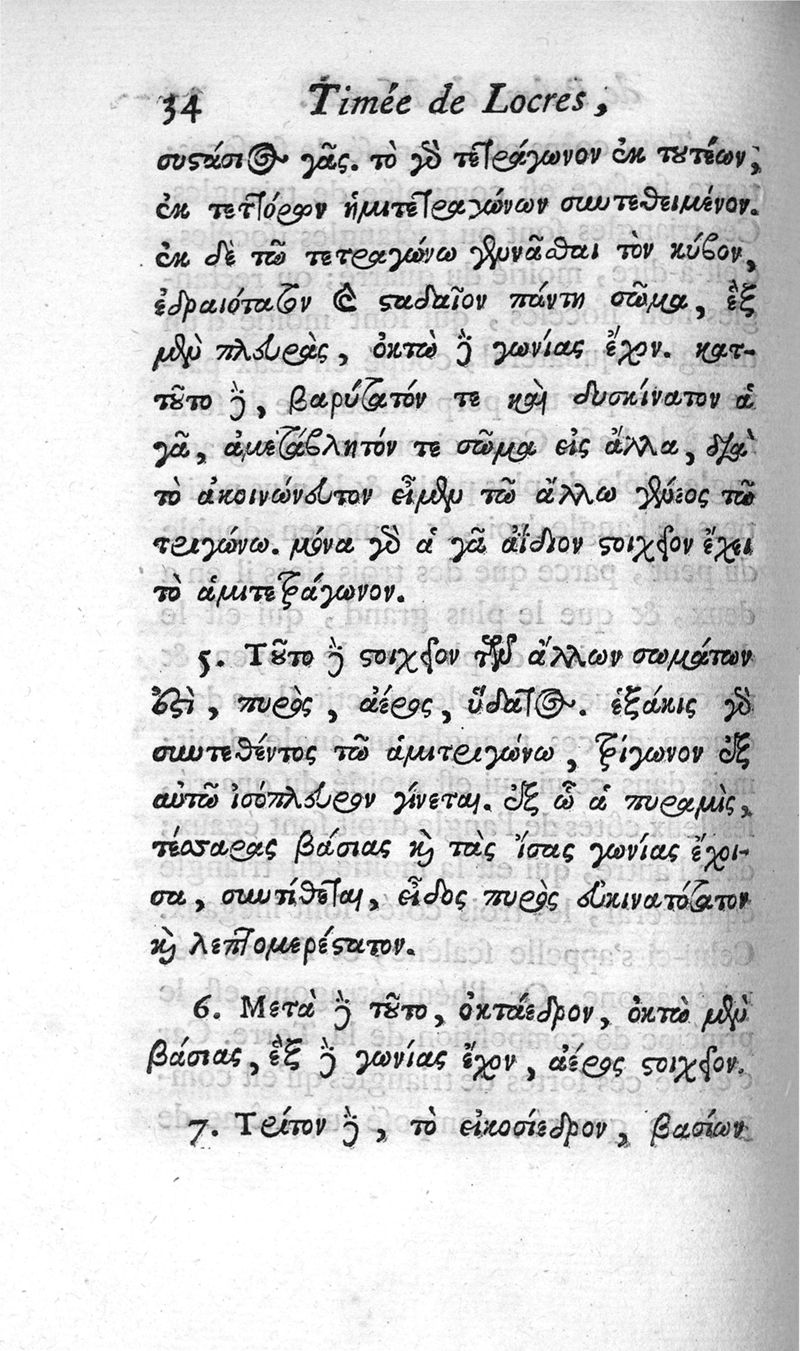 34 Timée de Locres,
συστάσιος γᾶς. τὸ γὰρ τετράγωνον ἐκ τουτέων,
ἐκ τεττόρων ἡμιτετραγώνων συντεθειμένον.
ἐκ δὲ τῶ τετραγώνω γεννᾶσθαι τὸν κύβον,
ἑδραιότατον καὶ σταδαῖον πάντη σῶμα, ἓξ
μὲν πλευρὰς, ὀκτὼ δὲ γωνίας ἔχον. κατ-
τοῦτο δὲ, βαρύτατόν τε καὶ δυσκίνατον ἁ
γᾶ, ἀμετάβλητόν τε σῶμα εἰς ἄλλα, διὰ
τὸ ἀκοινώνευτον εἶμεν τῶ ἄλλω γένεος τῶ
τριγώνω. μόνα γὰρ ἁ γᾶ ἀΐδιον στοιχεῖον ἔχει
τὸ ἁμιτετράγωνον.
5. Τοῦτο δὲ στοιχεῖον τῶν ἄλλων σωμάτων
ἐστὶ, πυρὸς, ἀέρος, ὕδατος. ἑξάκις γὰρ
συντεθέντος τῶ ἁμιτριγώνω, τρίγωνον ἐξ
αὐτῶ ἰσόπλευρον γίνεται. ἐξ ὧ ἁ πυραμὶς,
τέσσαρας βάσιας καὶ τὰς ἴσας γωνίας ἔχοι-
σα, συντίθεται, εἶδος πυρὸς εὐκινατότατον
καὶ λεπτομερέστατον.
6. Μετὰ δὲ τοῦτο, ὀκτάεδρον, ὀκτὼ μὲν
βάσιας, ἓξ δὲ γωνίας ἔχον, ἀέρος στοιχεῖον.
7. Τρίτον δὲ, τὸ εἰκοσίεδρον, βασίων